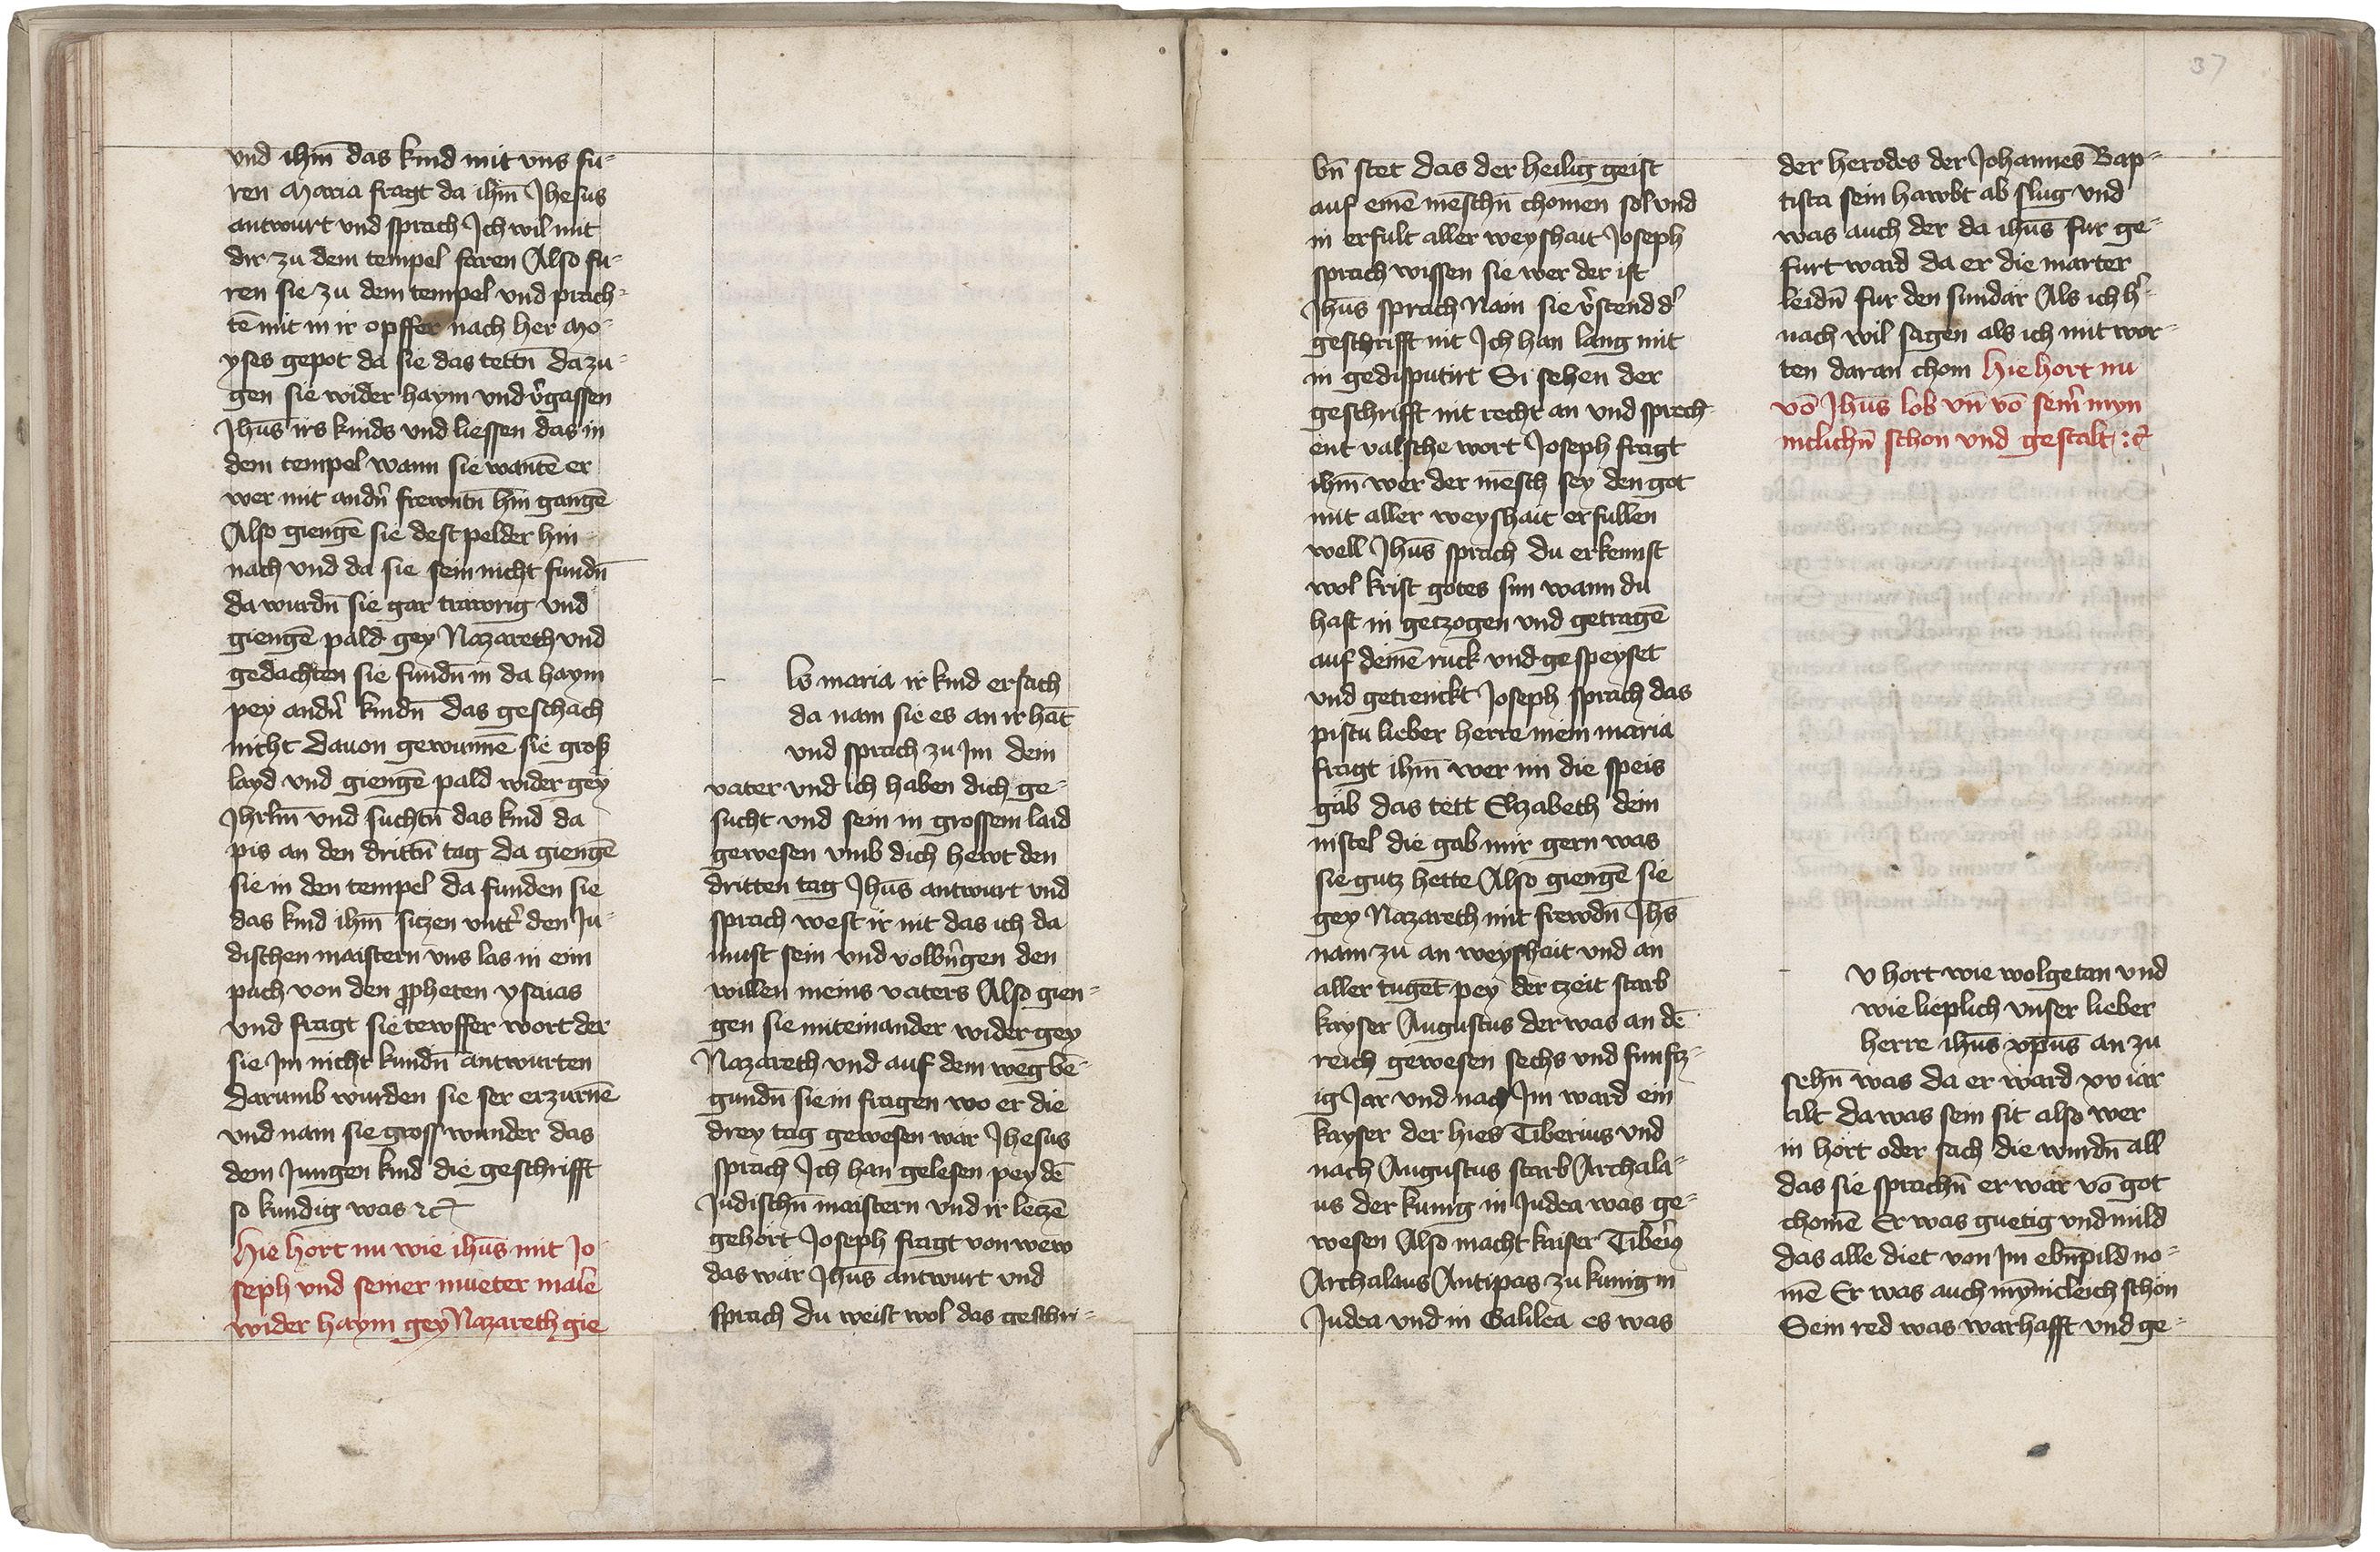 vnd ihm̄ das kind mit vns fu-
ren Maria fragt da ihm̄ Jhesus
antwurt vnd sprach Ich wil mit
dir zu dem tempel faren Also fu-
ren sie zu dem tempel vnd prach-
tē mit in ir opffer nach her Mo-
yses gepot da sie das tettn̄ da zu-
gen sie wider haym vnd v̉gassen
Jhūs irs kinds vnd liessen das in
dem tempel wann sie wantē er
wer mit andn̉ frewntn̄ hin gangē
Also giengē sie dest pelder hin
nach vnd da sie sein nicht fundn̄
da wurdn̄ sie gar trawrig vnd
giengē pald gey Nazareth vnd
gedachten sie fundn̄ in da haym
pey andn̉ kindn̄ das geschach
nicht dauon gewunnē sie groß
layd vnd giengē pald wider gey
Jhrlm̄ vnd suchtn̄ das kind da
pis an den drittn̄ tag da giengē
sie in den tempel da funden sie
das kind ihm̄ siczen vntt̉ den Ju-
dischen maistern vns las in ein
puch von den ꝓpheten ysaias
vnd fragt sie tewffer wort der
sie Jm nicht kundn̄ antwurten
darumb wurden sie ser erzurnē
vnd nam sie gross wunder das
dem Jungen kind die geschrifft
so kundig was ⁊c̄
Hie hort nu wie ihūs mit Jo
seph vnd seiner mueter mar̉e
wider haym gey Nazareth gie
ls maria ir kind ersach
da nam sie es an ir hāt
vnd sprach zu Jm dein
vater vnd ich haben dich ge-
sucht vnd sein in grossem laid
gewesen vmb dich hewt den
dritten tag Jhūs antwurt vnd
sprach west ir nit das ich da
must sein vnd volbn̉gen den
willen meins vaters Also gien-
gen sie miteinander wider gey
Nazareth vnd auf dem weg be-
gundn̄ sie in fragen wo er die
drey tag gewesen war Jhesus
sprach Ich han gelesen pey dē
Judischn̄ maistern vnd ir leczē
gehort Joseph fragt von wew
das wär Jhūs antwurt vnd
sprach du weist wol das geschri-
37
bn̄ stet das der heilig geist
auf einē menschn̄ chomen sol vnd
in erfult aller weyshait Joseph
sprach wissen sie wer der ist
Jhūs sprach Nain sie v̉stend d̉
geschrifft nit Ich han lang mit
in gedisputirt Si sehen der
geschrifft nit recht an vnd sprech-
ent valsche wort Joseph fragt
ihm̄ wer der mēsch sey den got
mit aller weyshait erfullen
well Jhūs sprach du erkennst
wol krist gotes sun wann du
hast in getzogen vnd getragē
auf deinē ruck vnd gespeyset
vnd getrenckt Joseph sprach das
pistu lieber herre mein maria
fragt ihm̄ wer im die speis
gäb das tett Elizabeth dein
nistel die gab mir gern was
sie gutz hette Also giengē sie
gey Nazareth mit frewdn̄ Jhs̄
nam zu an weyshait vnd an
aller tugēt pey der czeit starb
kayser Augustus der was an dē
reich gewesen sechs vnd funfcz-
ig Jar vnd nach Jm ward ein
kayser der hies Tiberius vnd
nach Augustus starb Archala-
us der kunig in Judea was ge-
wesen Also macht kaiser Tiber̉ꝯ
Archalaus Antipas zu kunig in
Judea vnd in Galilea es was
der herodes der Johannes Bap-
tista sein hawbt ab slug vnd
was auch der da ihūs fur ge-
furt ward da er die marter
leidn̄ fur den sundär Als ich h̉-
nach wil sagen als ich mit wor-
ten daran chom Hie hort nu
vō Jhūs lob vn̄ vō sein̉ myn
niclichn̄ schon vnd gestalt :⁊c̄
v hort wie wolgetan vnd
wie lieplich vnser lieber
herre ihūs xp̄us an zu
sehn̄ was da er ward xv iar
alt da was sein sit also wer
in hort oder sach die wurdn̄ all
das sie sprachn̄ er wär vō got
chomē Er was guetig vnd mild
das alle diet von Jm ebn̄pild no-
mē Er was auch mȳnicleich schon
Sein red was warhafft vnd ge-